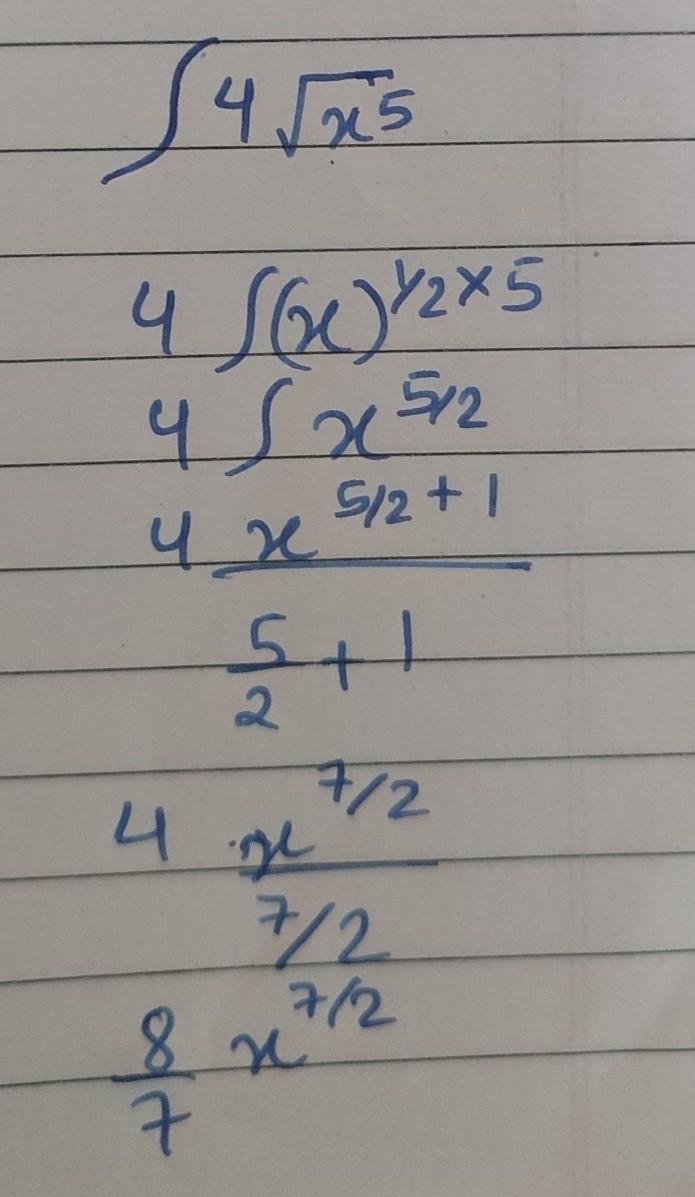 ∫ 4 √x5
4 ∫(x)^1/2 × 5
4 ∫ x^5/2
4 x^5/2 + 1
5/2 + 1
4 x^7/2
7/2
8/7 x^7/2